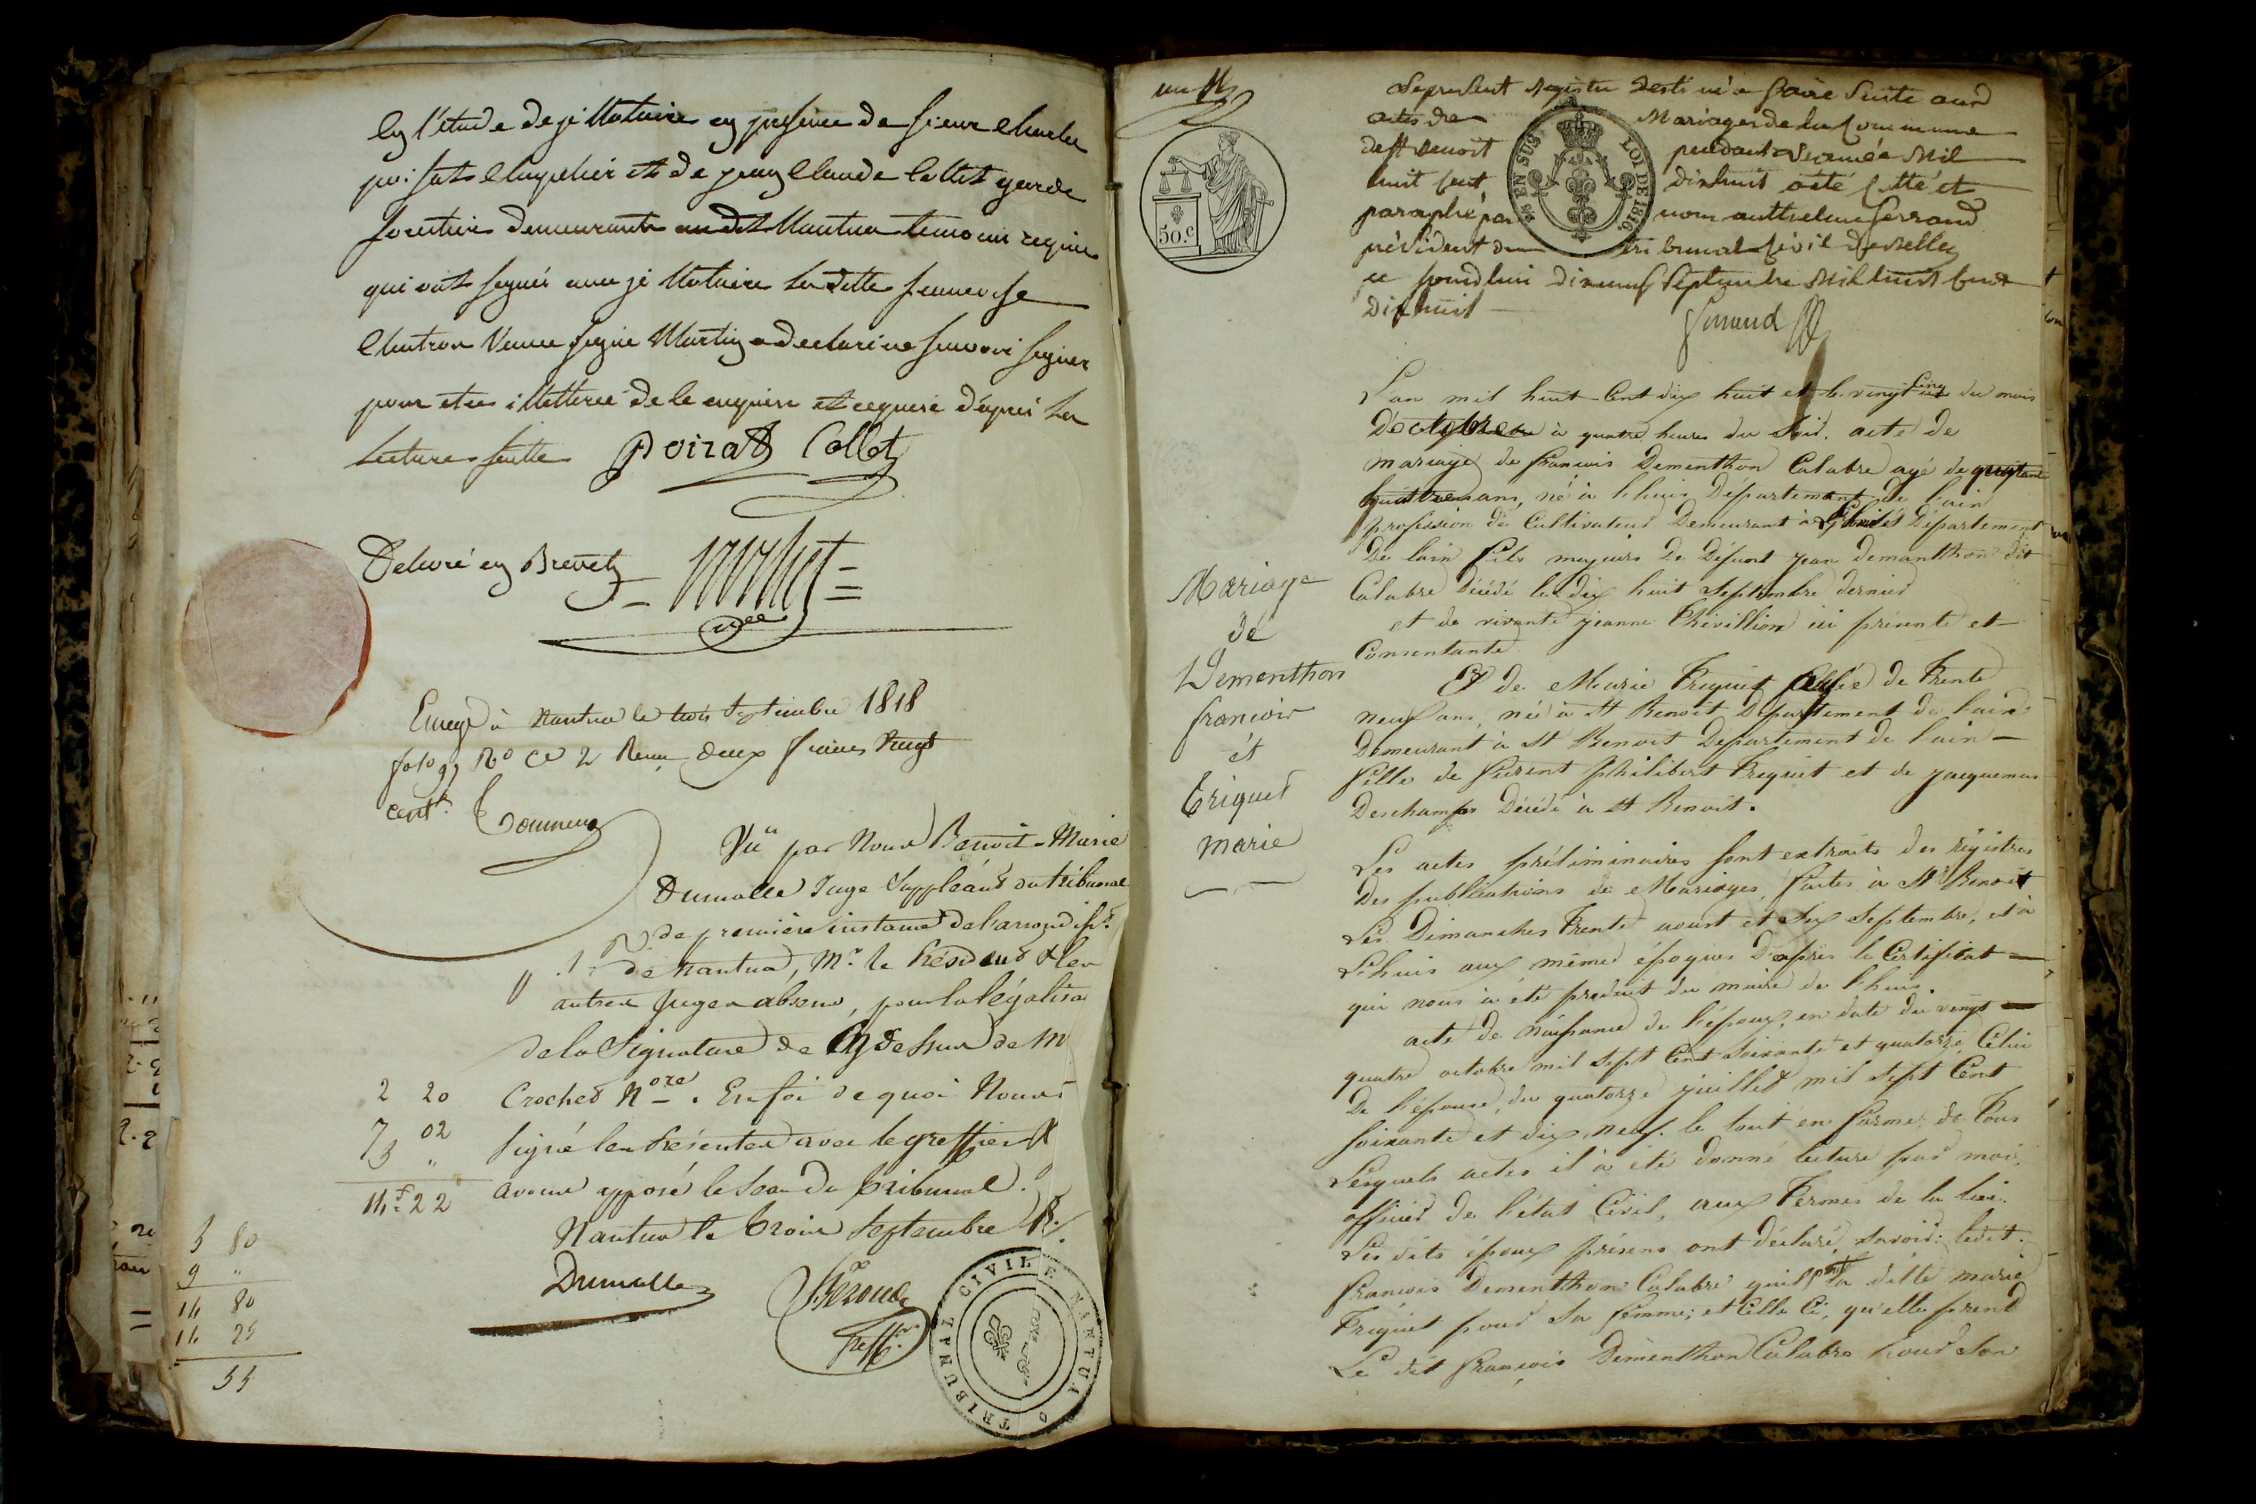 en l'étude de je Notaire en presence de sieur Charles
poisat Chapelier et de jean Claude Collet garde
forestier demeurants audit Nantua temoins requis
qui ont signés avec je Notaire la ditte
Chatron Veuve Martin a declaré ne savoir signer
pour etre illetterée de le enquise et requise d'après la
lecture faitte Poizat Collet
Delivré en Brevet
Enregé à Nantua le trois Septembre 1818
folo 97 Ro Ce 2 Reçu deux francs vingt
centes
Vu par Nous Benoit-Marie
Dumolle Juge Suppléant du tribunal
de première instance de l'arrondisst
de Nantua, Mr. le Président & les
autres Juges absens, pour la légalisa
de la Signature de Cy dessus de M
Crochet Nore. En foi de quoi Nous
signé les Présentes avec le greffier &
avons apposé le Sceau du tribunal.
Nantua le trois Septembre
Dumolle
Béroud
greffer
2 20
7 02
11 f 22
3 80
9 "
14 80
14 25
55
TRIBUNAL CIVIL NANTUA
Le present registre destiné a faire Suite aux
actes de Mariages de la Commune
de St Benoit pendant l'année Mil
huit cent dixhuit a été Cotté et
paraphé par nous anthelme ferrand
président du tribunal Civil de Belley
ce jourd'hui dixneuf Septembre Mil huit cent
Dixhuit
ferrand
EN SUS LOI DE 1816
50.c
L'an mil huit Cent dix huit et le vingt cinq du mois
D'octobre à quatre heures du soir. acte de
mariage de françois Dementhon Calabre agé de quarante
quatre ans, né à Lhuis Département de Lain
profession de Cultivateur Demeurant à Lhuis Département
De lain fils majeurs de Défunt jean demanthon dit
Calabre décédé le dix huit Septembre dernier
et de vivante jeanne Thévillion ici présente et
Consentante
Et de Marie Triquet agée de Trente
neuf ans, né à St Benoit Département de lain
Demeurant à St Benoit Departement de l'ain
fille de furent philibert Triquet et de jacquemine
Deschamps Décédé à St Benoit.
Mariage
de
Dementhon
francois
et
Triquet
marie
Les actes préliminaires sont extraits des régistres
Des publications de Mariages, faites à St Benoit
Les Dimanches Trente aoust et Six Septembre, et à
Lhuis aux mêmes époques D'après le Certificat
qui nous à été produit du maire de Lhuis.
acte de naissance de l'époux, en date du vingt
quatre octobre mil sept Cent soixante et quatorze, Celui
De l'épouse, du quatorze juillet mil sept Cent
soixante et dix neuf. le tout en forme; de Tous
Lesquels actes il à été donné lecture par moi,
officier de l'état Civil, aux Termes de la loi.
Les dits époux présens ont déclaré, savoir: ledit.
françois Dementhon Calabre quil prend la ditte marie
Triquet pour Sa femme; et Celle Ci, qu'elle prend
Le dit françois Dementhon Calabre pour Son